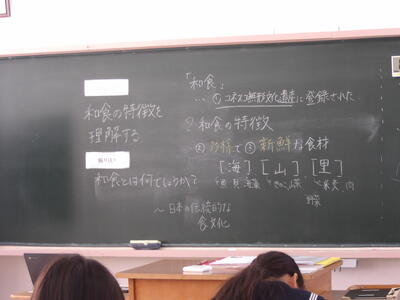 和食の特徴を
理解する
振り返り
和食とは何でしょうか?
~日本の伝統的な
食文化
「和食」
…①ユネスコ無形文化遺産に登録された
?和食の特徴
②多様で③新鮮な食材
[海][山][里]
野菜